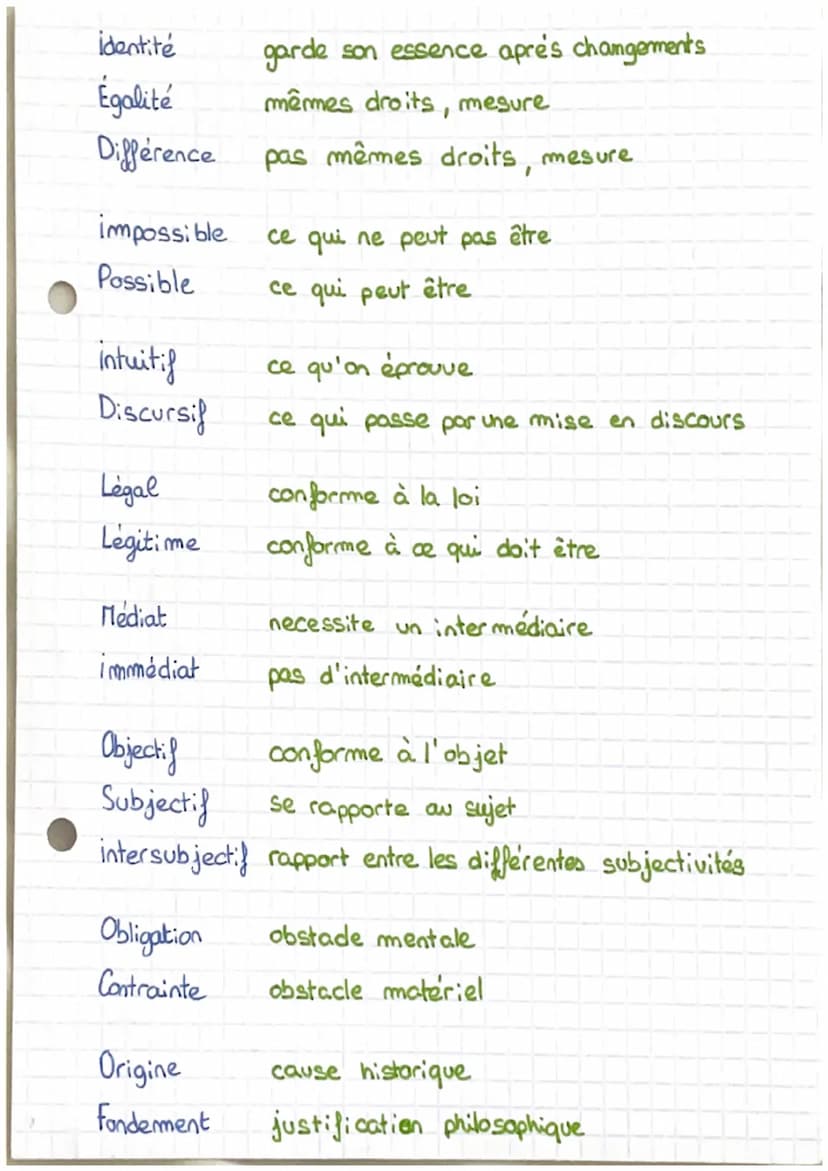 identité garde son essence aprés changements
Égalité mêmes droits, mesure
Différence pas mêmes droits, mesure
impossible ce qui ne peut pas être
Possible ce qui peut être
intuitif ce qu'on éprouve
Discursif ce qui passe par une mise en discours
Légal conforme à la loi
Légitime conforme à ce qui doit être
Médiat necessite un intermédiaire
immédiat pas d'intermédiaire
Objectif conforme à l'objet
Subjectif se rapporte au sujet
intersubjectif rapport entre les différentes subjectivités
Obligation obstacle mentale
Contrainte obstacle matériel
Origine cause historique
Fondement justification philosophique